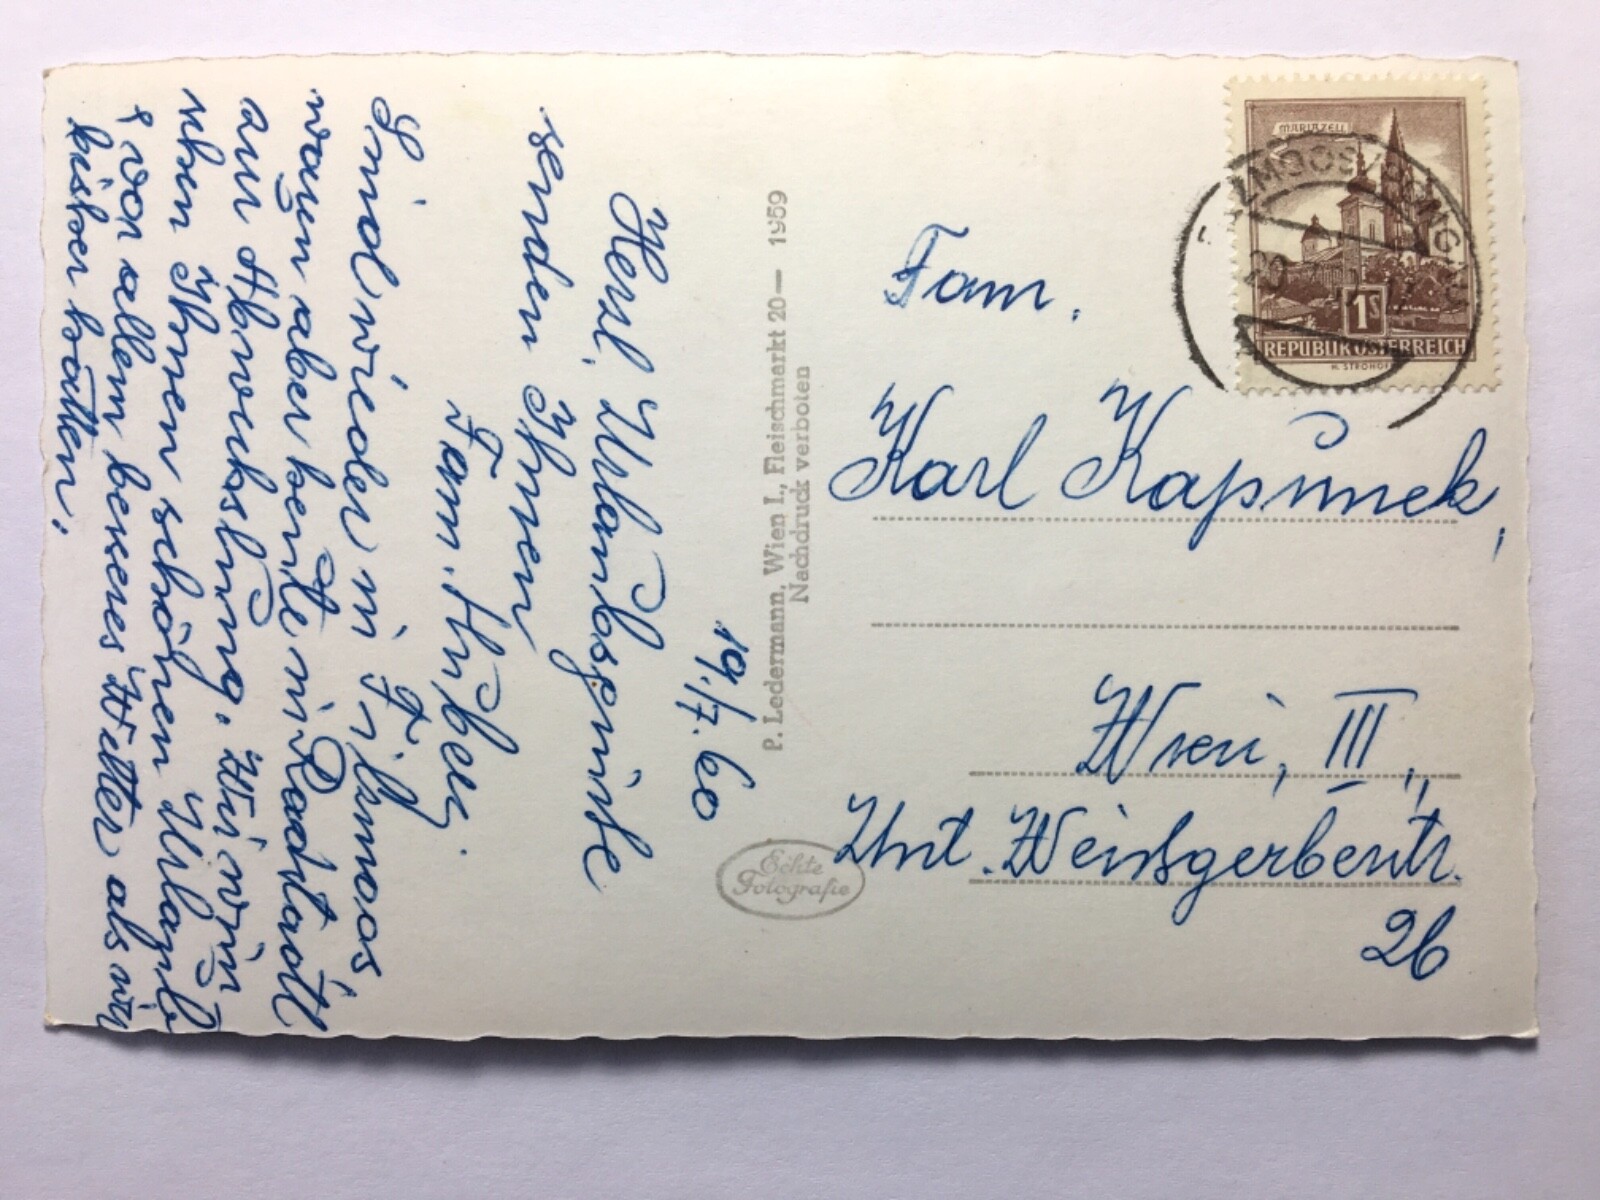 19./7.60
Herzl. Urlaubsgrüße
senden Ihnen
Fam. Huber.
Sind wieder in Filzmoos,
waren aber heute in Radstadt
zur Abwechslung. Wir wün
schen Ihnen schönen Urlaub
& vor allem besseres Wetter als wir
bisher hatten.
P. Ledermann, Wien I., Fleischmarkt 20— 1959
Nachdruck verboten
Echte
Fotografie
MARIAZELL
1S
REPUBLIK ÖSTERREICH
20
Fam.
Karl Kapunek,
Wien, III.,
Unt. Weißgerberstr.
26